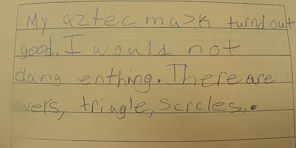 My aztec mask turnd out
good. I would not
dang enthing. There are
overs, tringle, scrcles,.